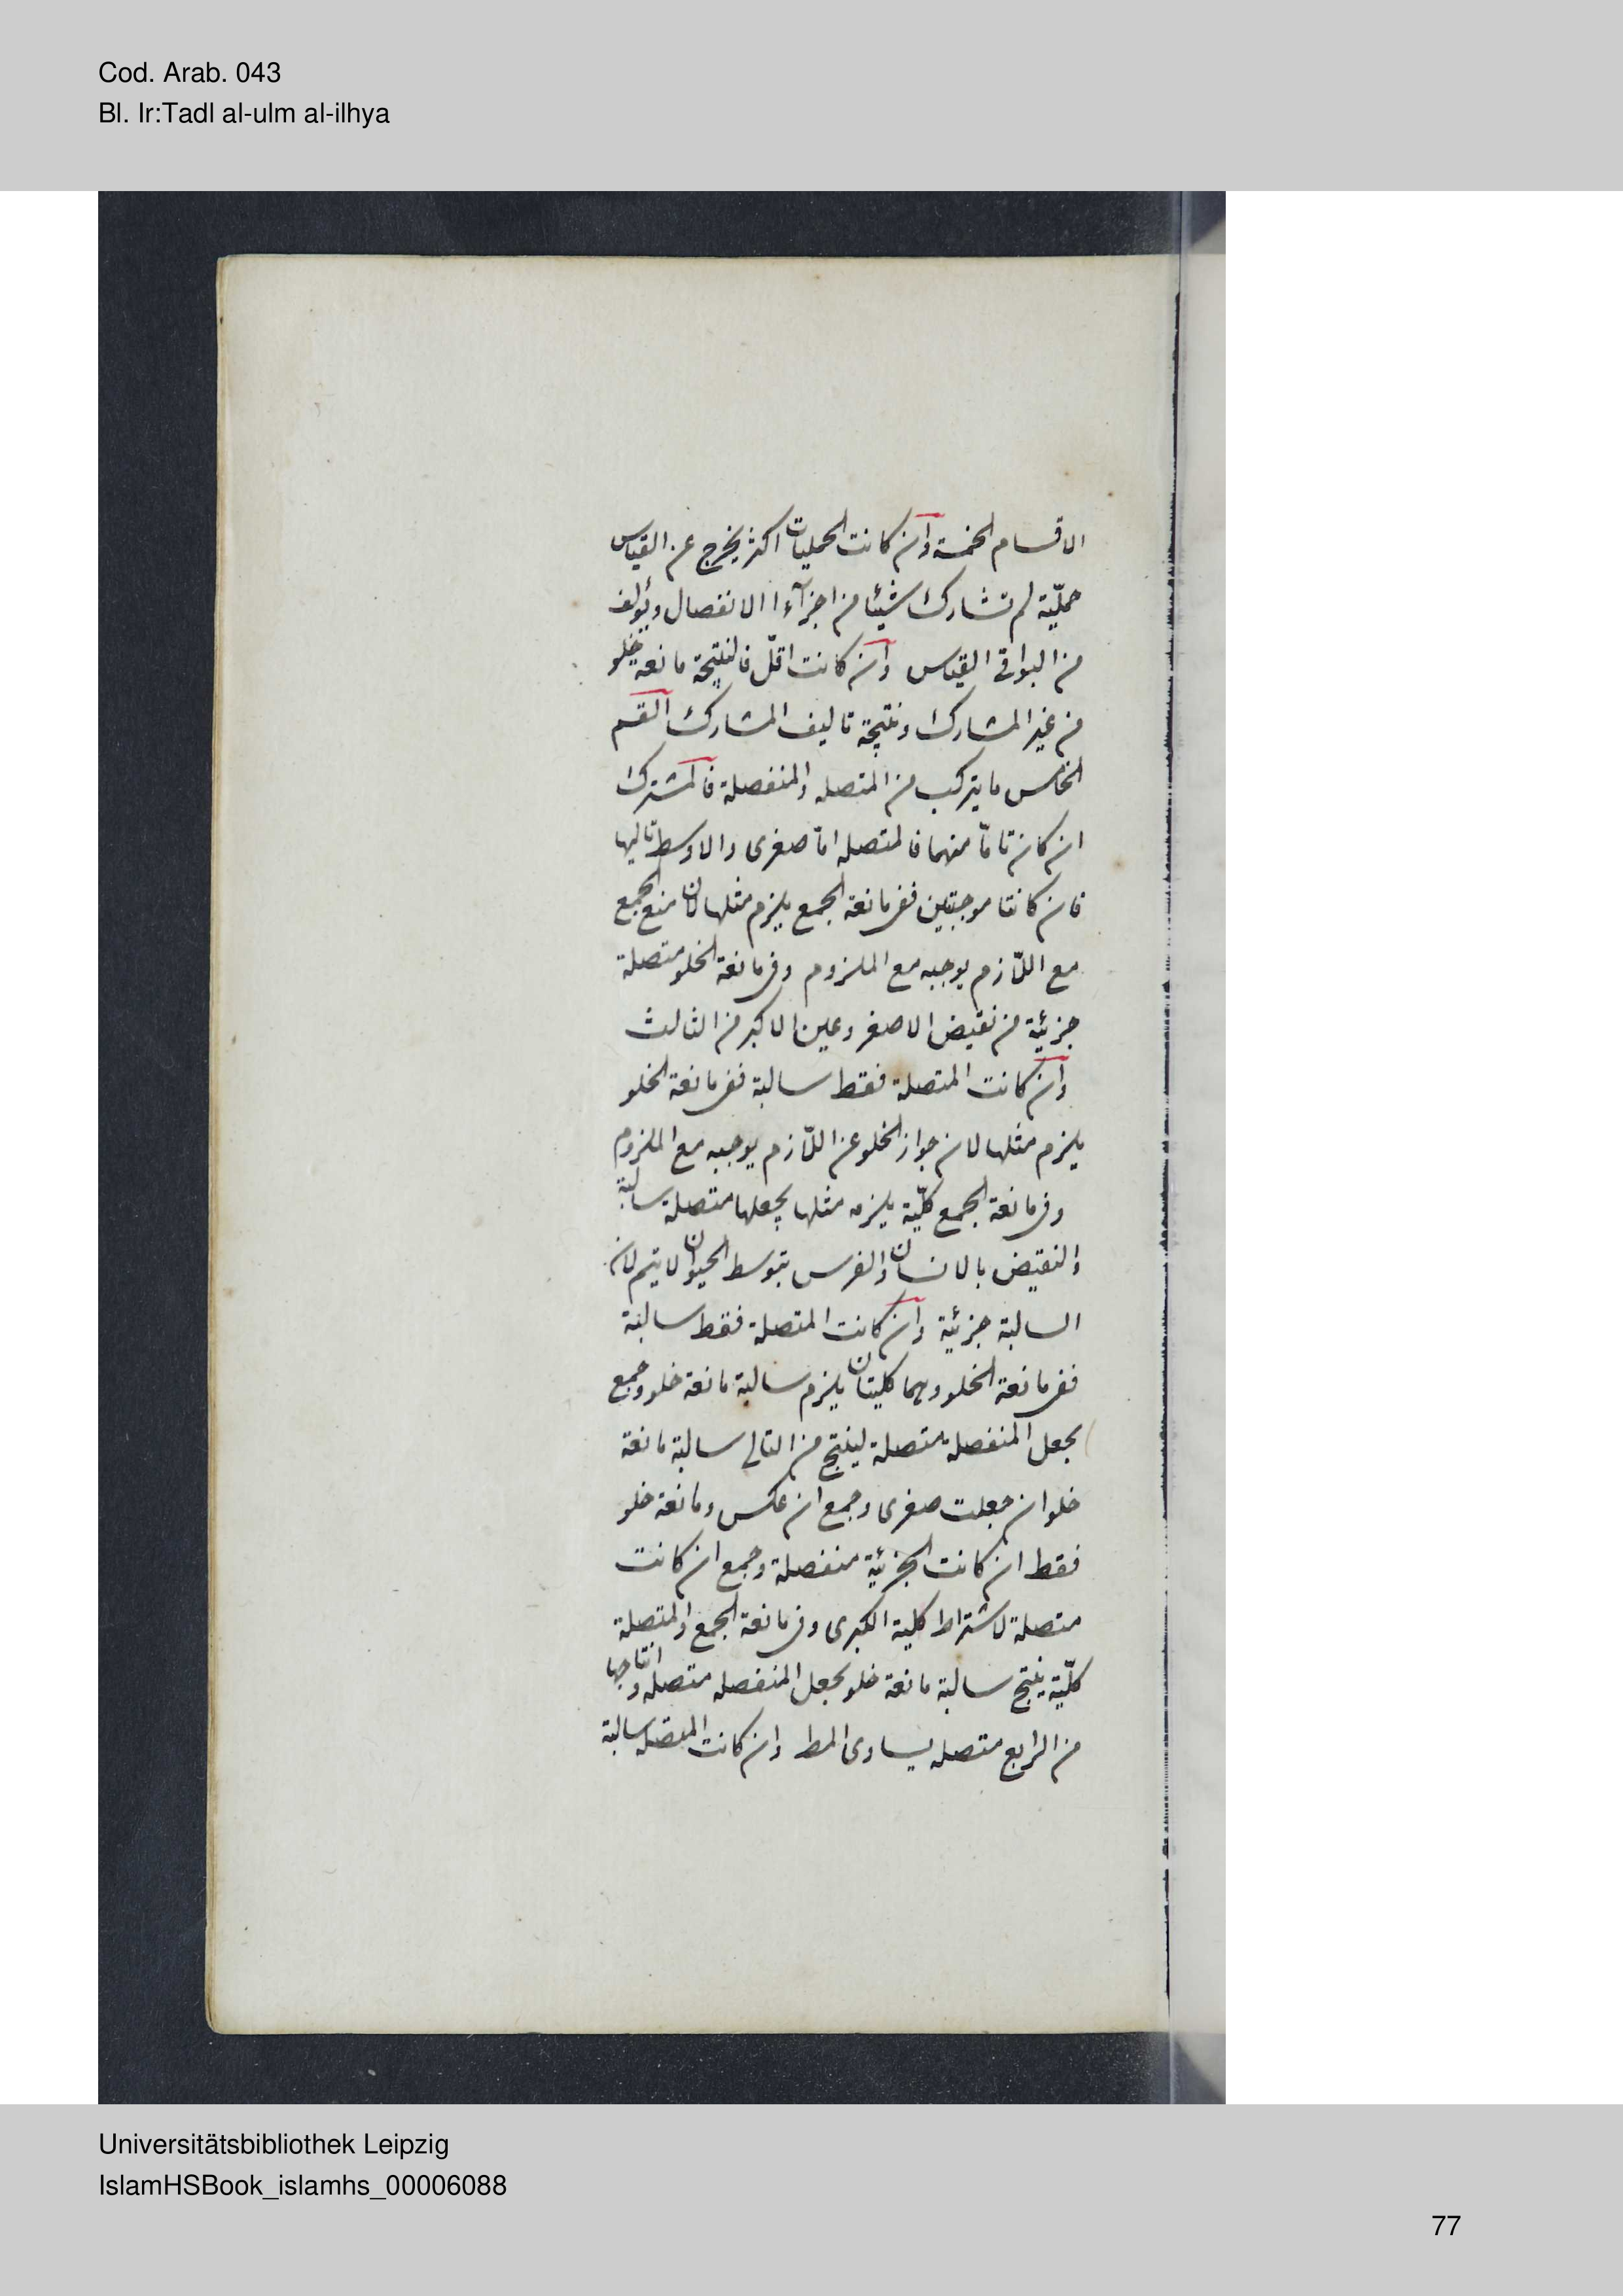 Cod. Arab. 043
Bl. Ir:Tadl al-ulm al-ilhya
الاقسام الخمسة وان كانت الحمليات اكثر يخرج عن القياس
حمليّة لم تشارك شيئا من اجزآء الانفصال ويؤلف
من البواقى القياس وان كانت اقلّ فالنتيجة مانعة خلو
من غير المشارك ونتيجة تاليف المشارك القسم
الخامس ما يتركب من المتصله والمنفصلة فالمشترك
ان كان تامّا منهما فالمتصله امّا صغرى والاوسط تاليها
فان كانتا موجبتين ففى مانعة الجمع يلزم مثلها لان منع الجمع
مع اللّازم يوجبه مع الملزوم وفى مانعة الخلو متصلة
جزئية من نقيض الاصغر وعين الاكبر من الثالث
وان كانت المتصلة فقط سالبة ففى مانعة الخلو
يلزم مثلها لان جواز الخلو عن اللّازم يوجبه مع الملزوم
وفى مانعة الجمع كلّية يلزمه مثلها بجعلها متصلة سالبة
والنقيض بالانسان والفرس بتوسط الحيوان لا يتم لان
السالبة جزئية وان كانت المتصلة فقط سالبة
ففى مانعة الخلو وهما كليتان يلزم سالبة مانعة خلو وجمع
بجعل المنفصلة متصلة لينتج من التالى سالبة مانعة
خلو ان جعلت صغرى وجمع ان عكس ومانعة خلو
فقط ان كانت الجزئية منفصلة وجمع ان كانت
متصلة لاشتراط كلية الكبرى وفى مانعة الجمع والمتصلة
كلّية ينتج سالبة مانعة خلو بجعل المنفصله متصله وانتاجها
من الرابع متصله يساوى المط وان كانت المتصله سالبة
Universitätsbibliothek Leipzig
IslamHSBook_islamhs_00006088
77